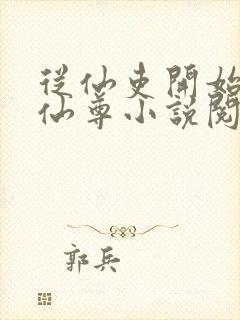 從仙吏開始
仙尊小說閱
郭兵